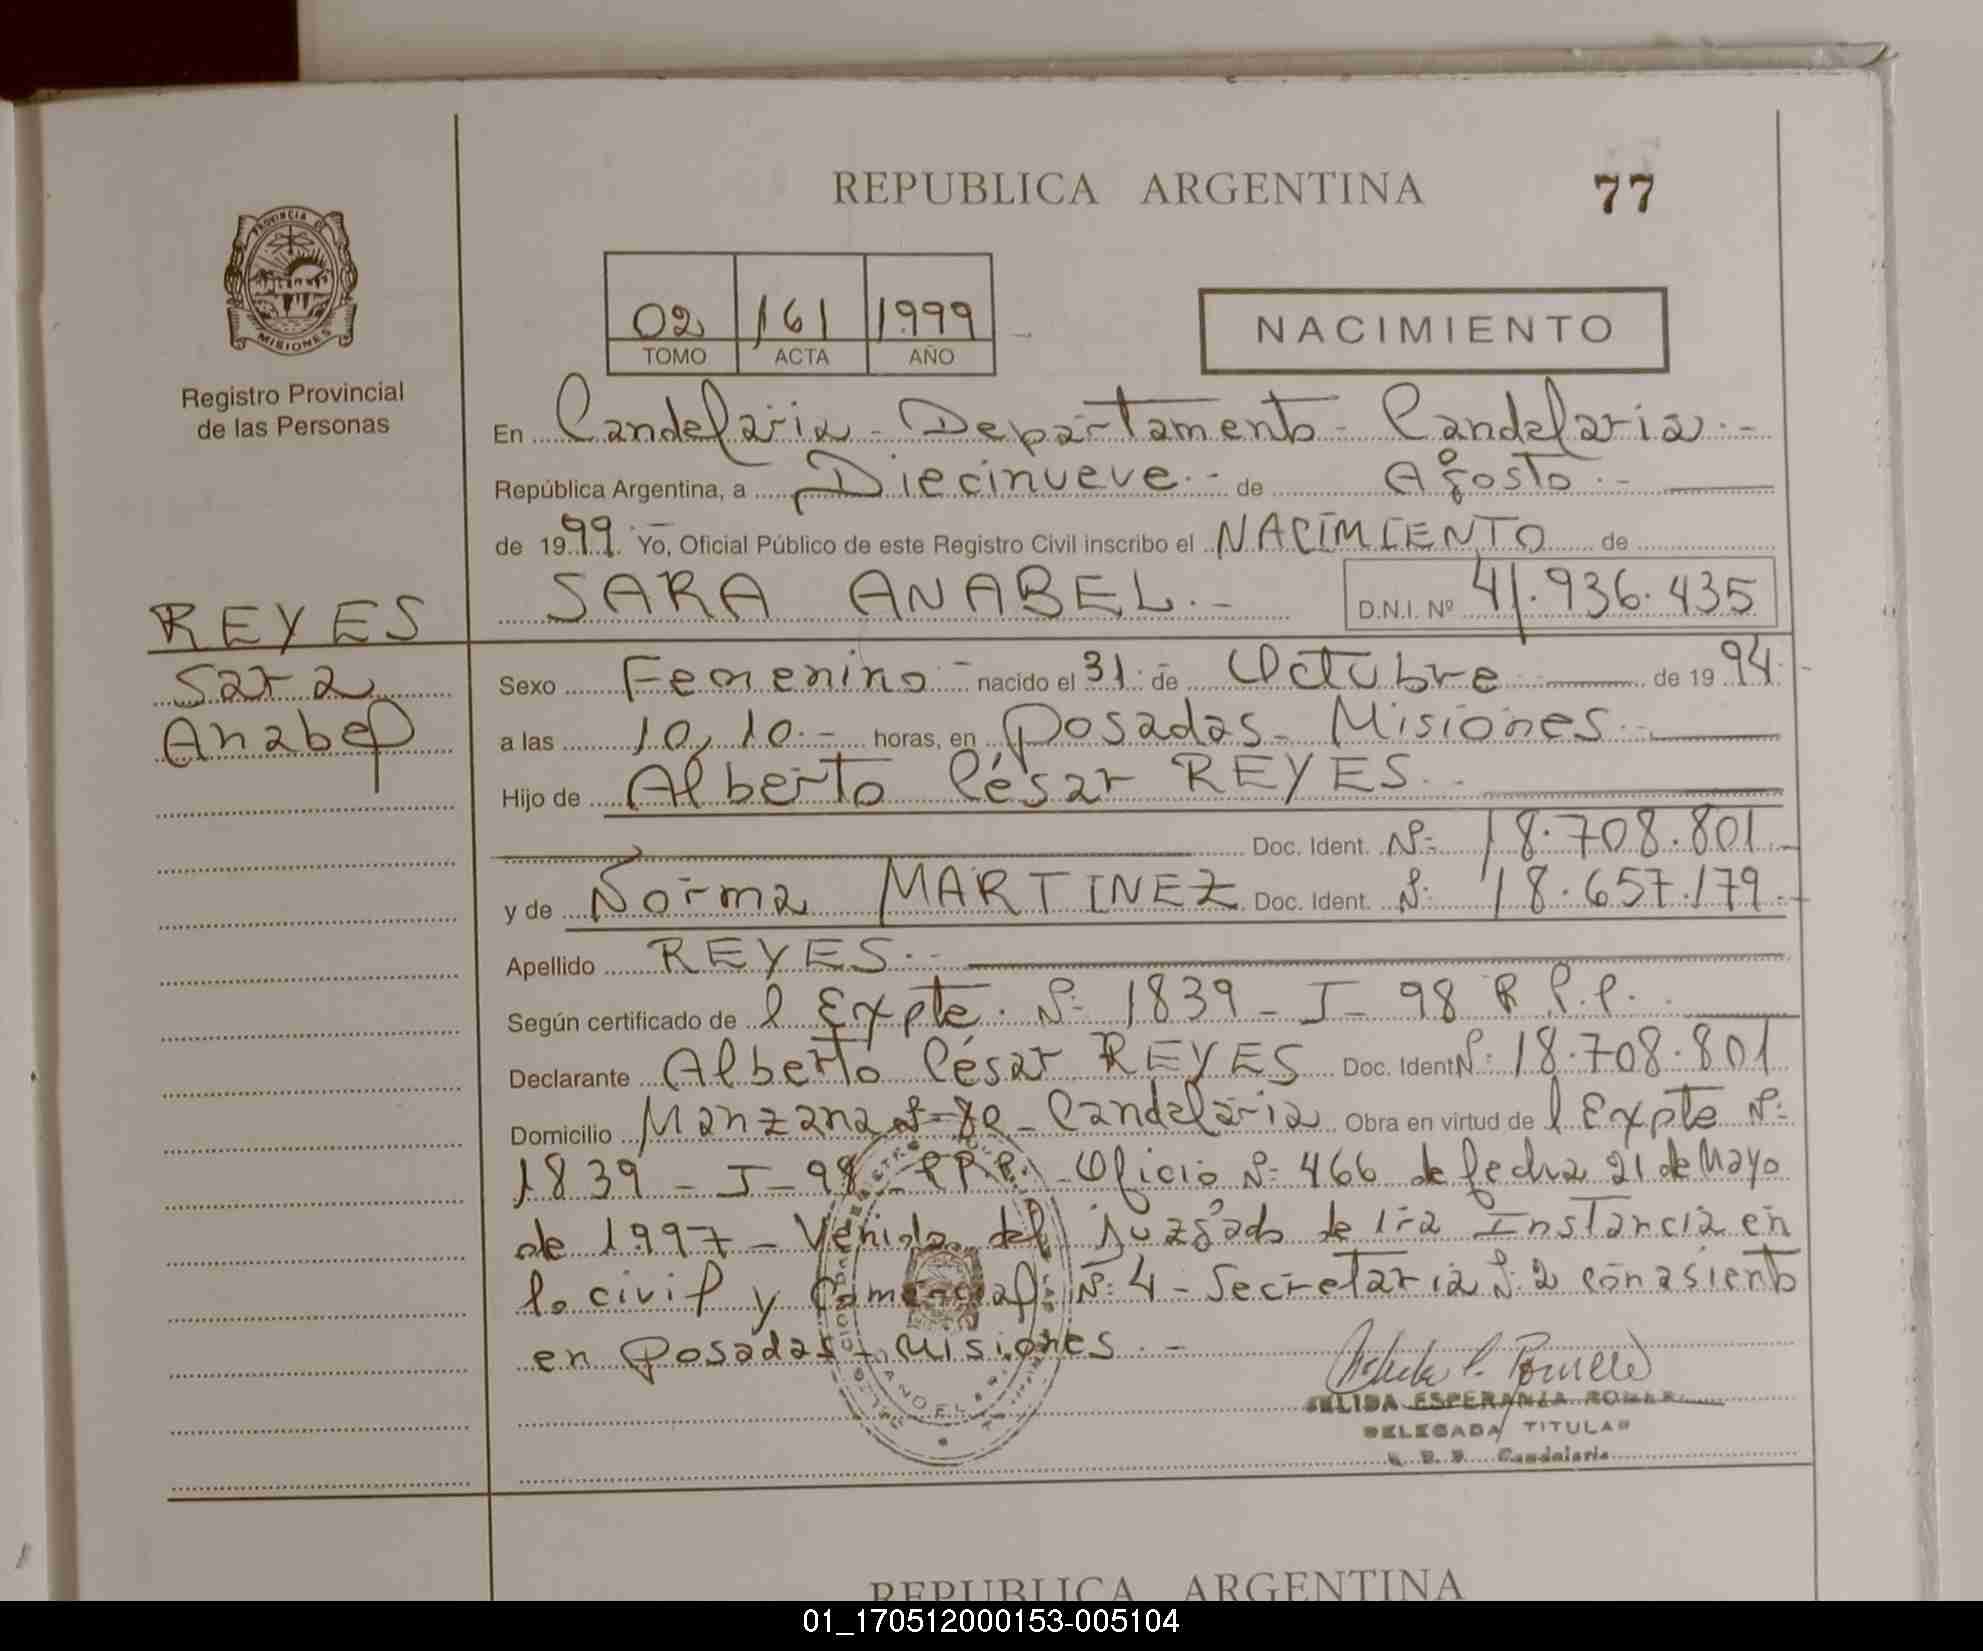 REPUBLICA ARGENTINA
77
PROVINCIA DE
MISIONES
Registro Provincial
de las Personas
02 161 1999
TOMO ACTA AÑO
NACIMIENTO
En Candelaria - Departamento - Candelaria.-
República Argentina, a Diecinueve.- de Agosto.-
de 1999.- Yo, Oficial Público de este Registro Civil inscribo el NACIMIENTO de
SARA ANABEL.- D.N.I. Nº 41.936.435
REYES
Sara
Anabel
Sexo Femenino - nacido el 31 de Octubre de 1994.-
a las 10,10.- horas, en Posadas - Misiones.-
Hijo de Alberto César REYES.-
Doc. Ident. Nº 18.708.801.-
y de Norma MARTINEZ Doc. Ident. Nº 18.657.179.-
Apellido REYES.-
Según certificado de l Expte. Nº 1839 - J - 98 R.P.P.
Declarante Alberto César REYES Doc. Ident Nº 18.708.801
Domicilio Manzana Nº - Candelaria Obra en virtud de l Expte Nº
1839 - J - 98 - R.P.P. - Oficio Nº 466 de fecha 21 de Mayo
de 1997 - Venido del Juzgado de 1ra Instancia en
lo civil y Comercial Nº 4 - Secretaria Nº 2 con asiento
en Posadas - Misiones.-
ESPERANZA
DELEGADA TITULAR
Candelaria
REPUBLICA ARGENTINA
01_170512000153-005104